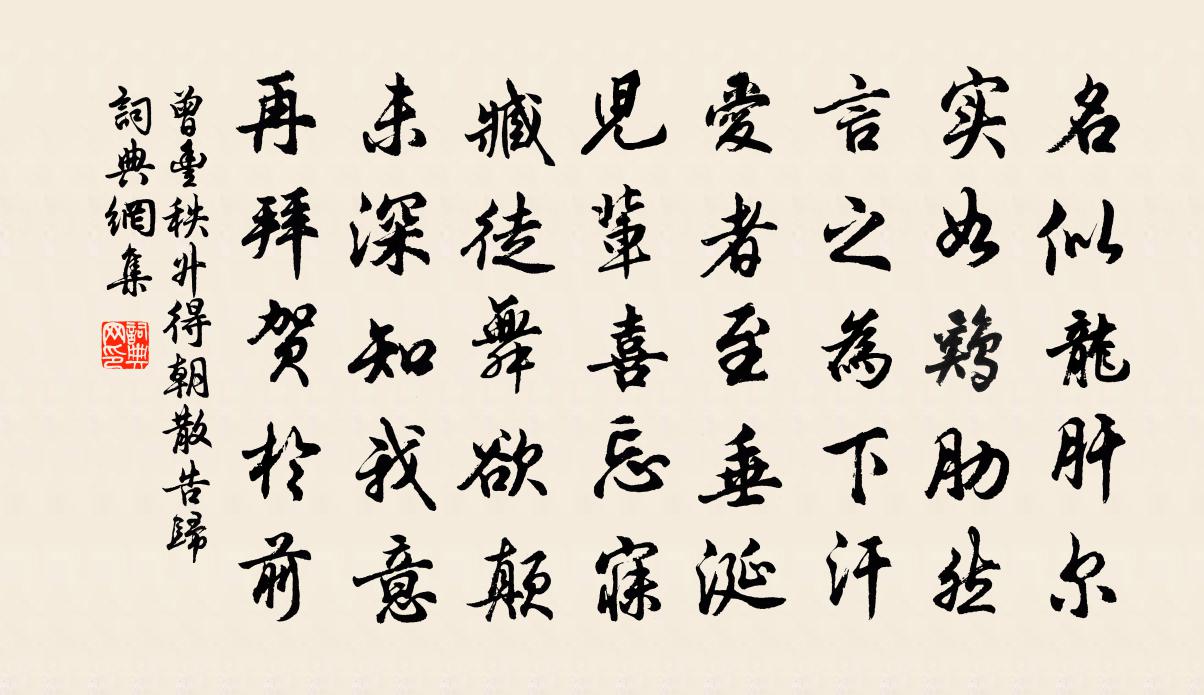 名似龍肝尔
实如鷄肋然
言之為下汗
愛者至垂涎
児輩喜忘寐
臧徒舞欲顛
未深知我意
再拜贺於前
曾豊秩外得朝散告歸
詞典網集
詞典网印